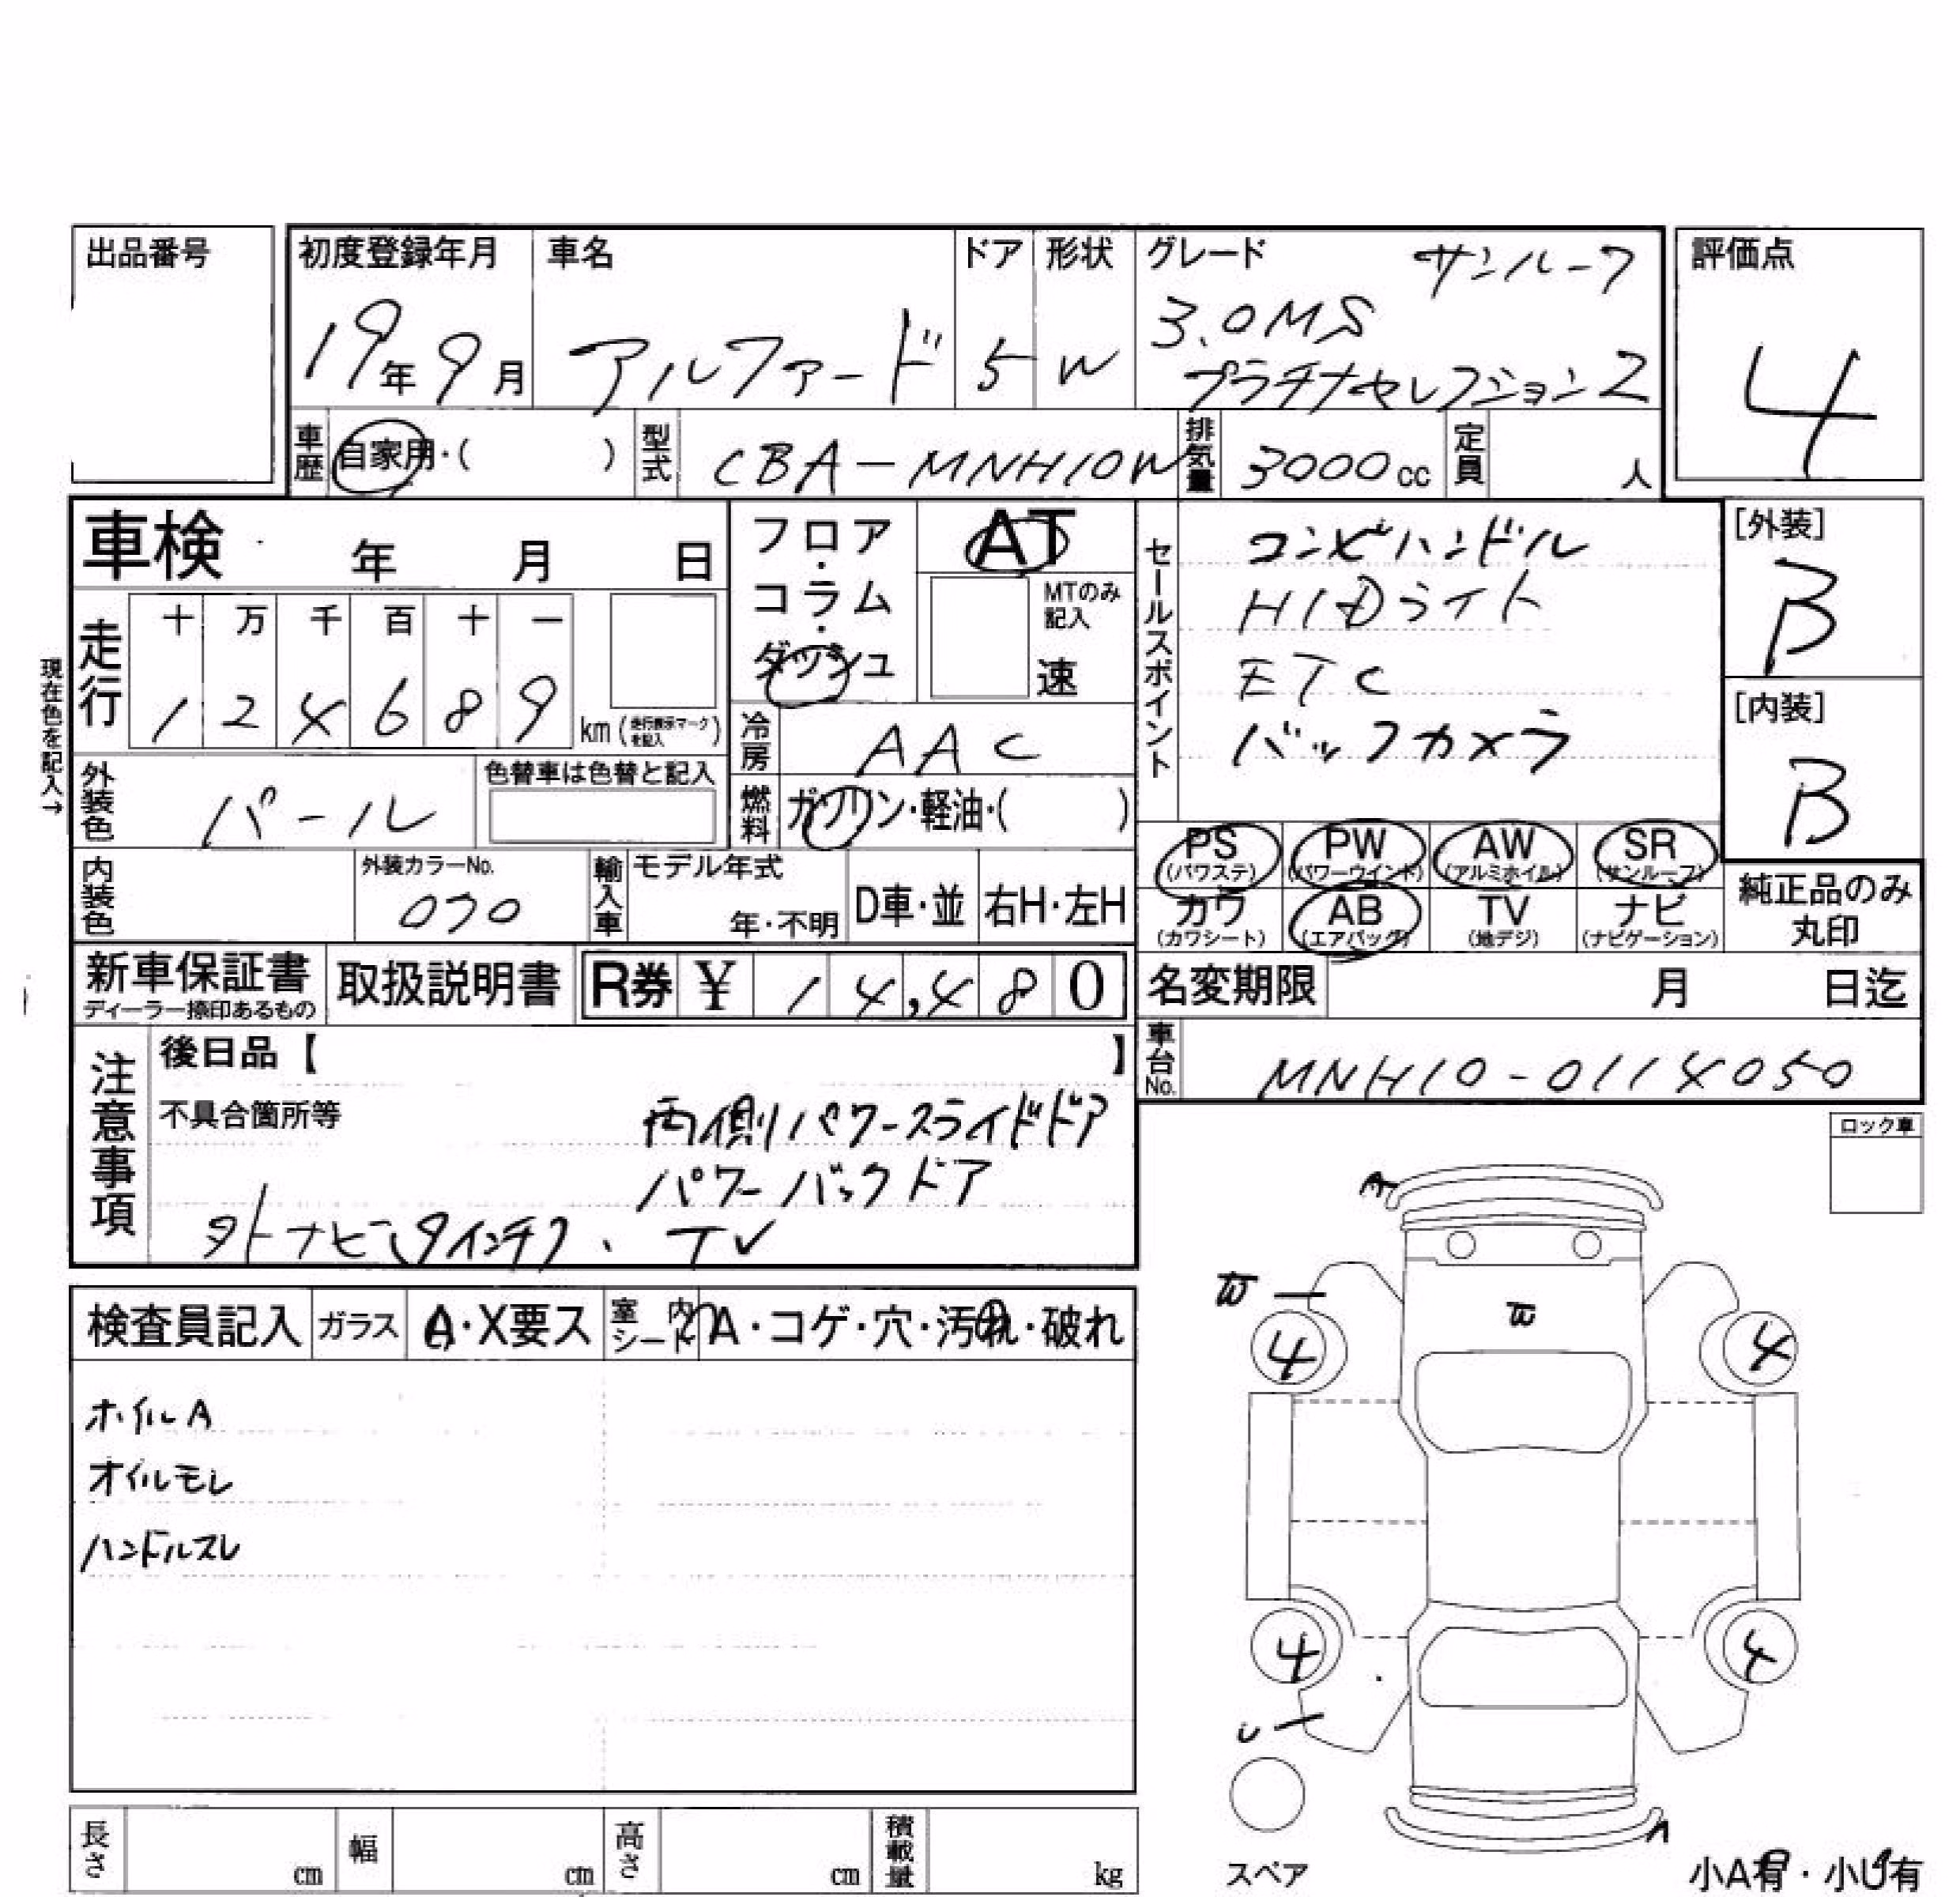 出品番号
初度登録年月 車名 ドア 形状 グレード サンルーフ 評価点
19年9月 アルファード 5 W 3.0MS
プラチナセレクション2
4
車歴 自家用・( ) 型式 CBA-MNH10W 排気量 3000cc 定員 人
車検 年 月 日
フロア・コラム・ダッシュ
AT
MTのみ記入
速
セールスポイント
コンビハンドル
HIDライト
ETC
バックカメラ
[外装]
B
[内装]
B
現在色を記入→
走行
十 万 千 百 十 一
1 2 4 6 8 9 km(走行表示マークを記入)
冷房 AAC
外装色 パール 色替車は色替と記入
燃料 ガソリン・軽油・( )
PS PW AW SR
(パワステ) (パワーウインド) (アルミホイル) (サンルーフ)
カワ AB TV ナビ
(カワシート) (エアバッグ) (地デジ) (ナビゲーション)
純正品のみ
丸印
内装色 外装カラーNo. 070 輸入車 モデル年式 年・不明 D車・並 右H・左H
新車保証書 取扱説明書 R券 ¥ 14,480
ディーラー捺印あるもの
名変期限 月 日迄
車台No. MNH10-0114050
注意事項
後日品【 】
不具合箇所等 両側パワースライドドア
パワーバックドア
外ナビ(9インチ)、TV
ロック車
検査員記入 ガラス A・X要ス 室内シート A・コゲ・穴・汚れ・破れ
ホイルA
オイルモレ
ハンドルスレ
4 4
4 4
スペア
小A有・小U有
長さ cm 幅 cm 高さ cm 積載量 kg